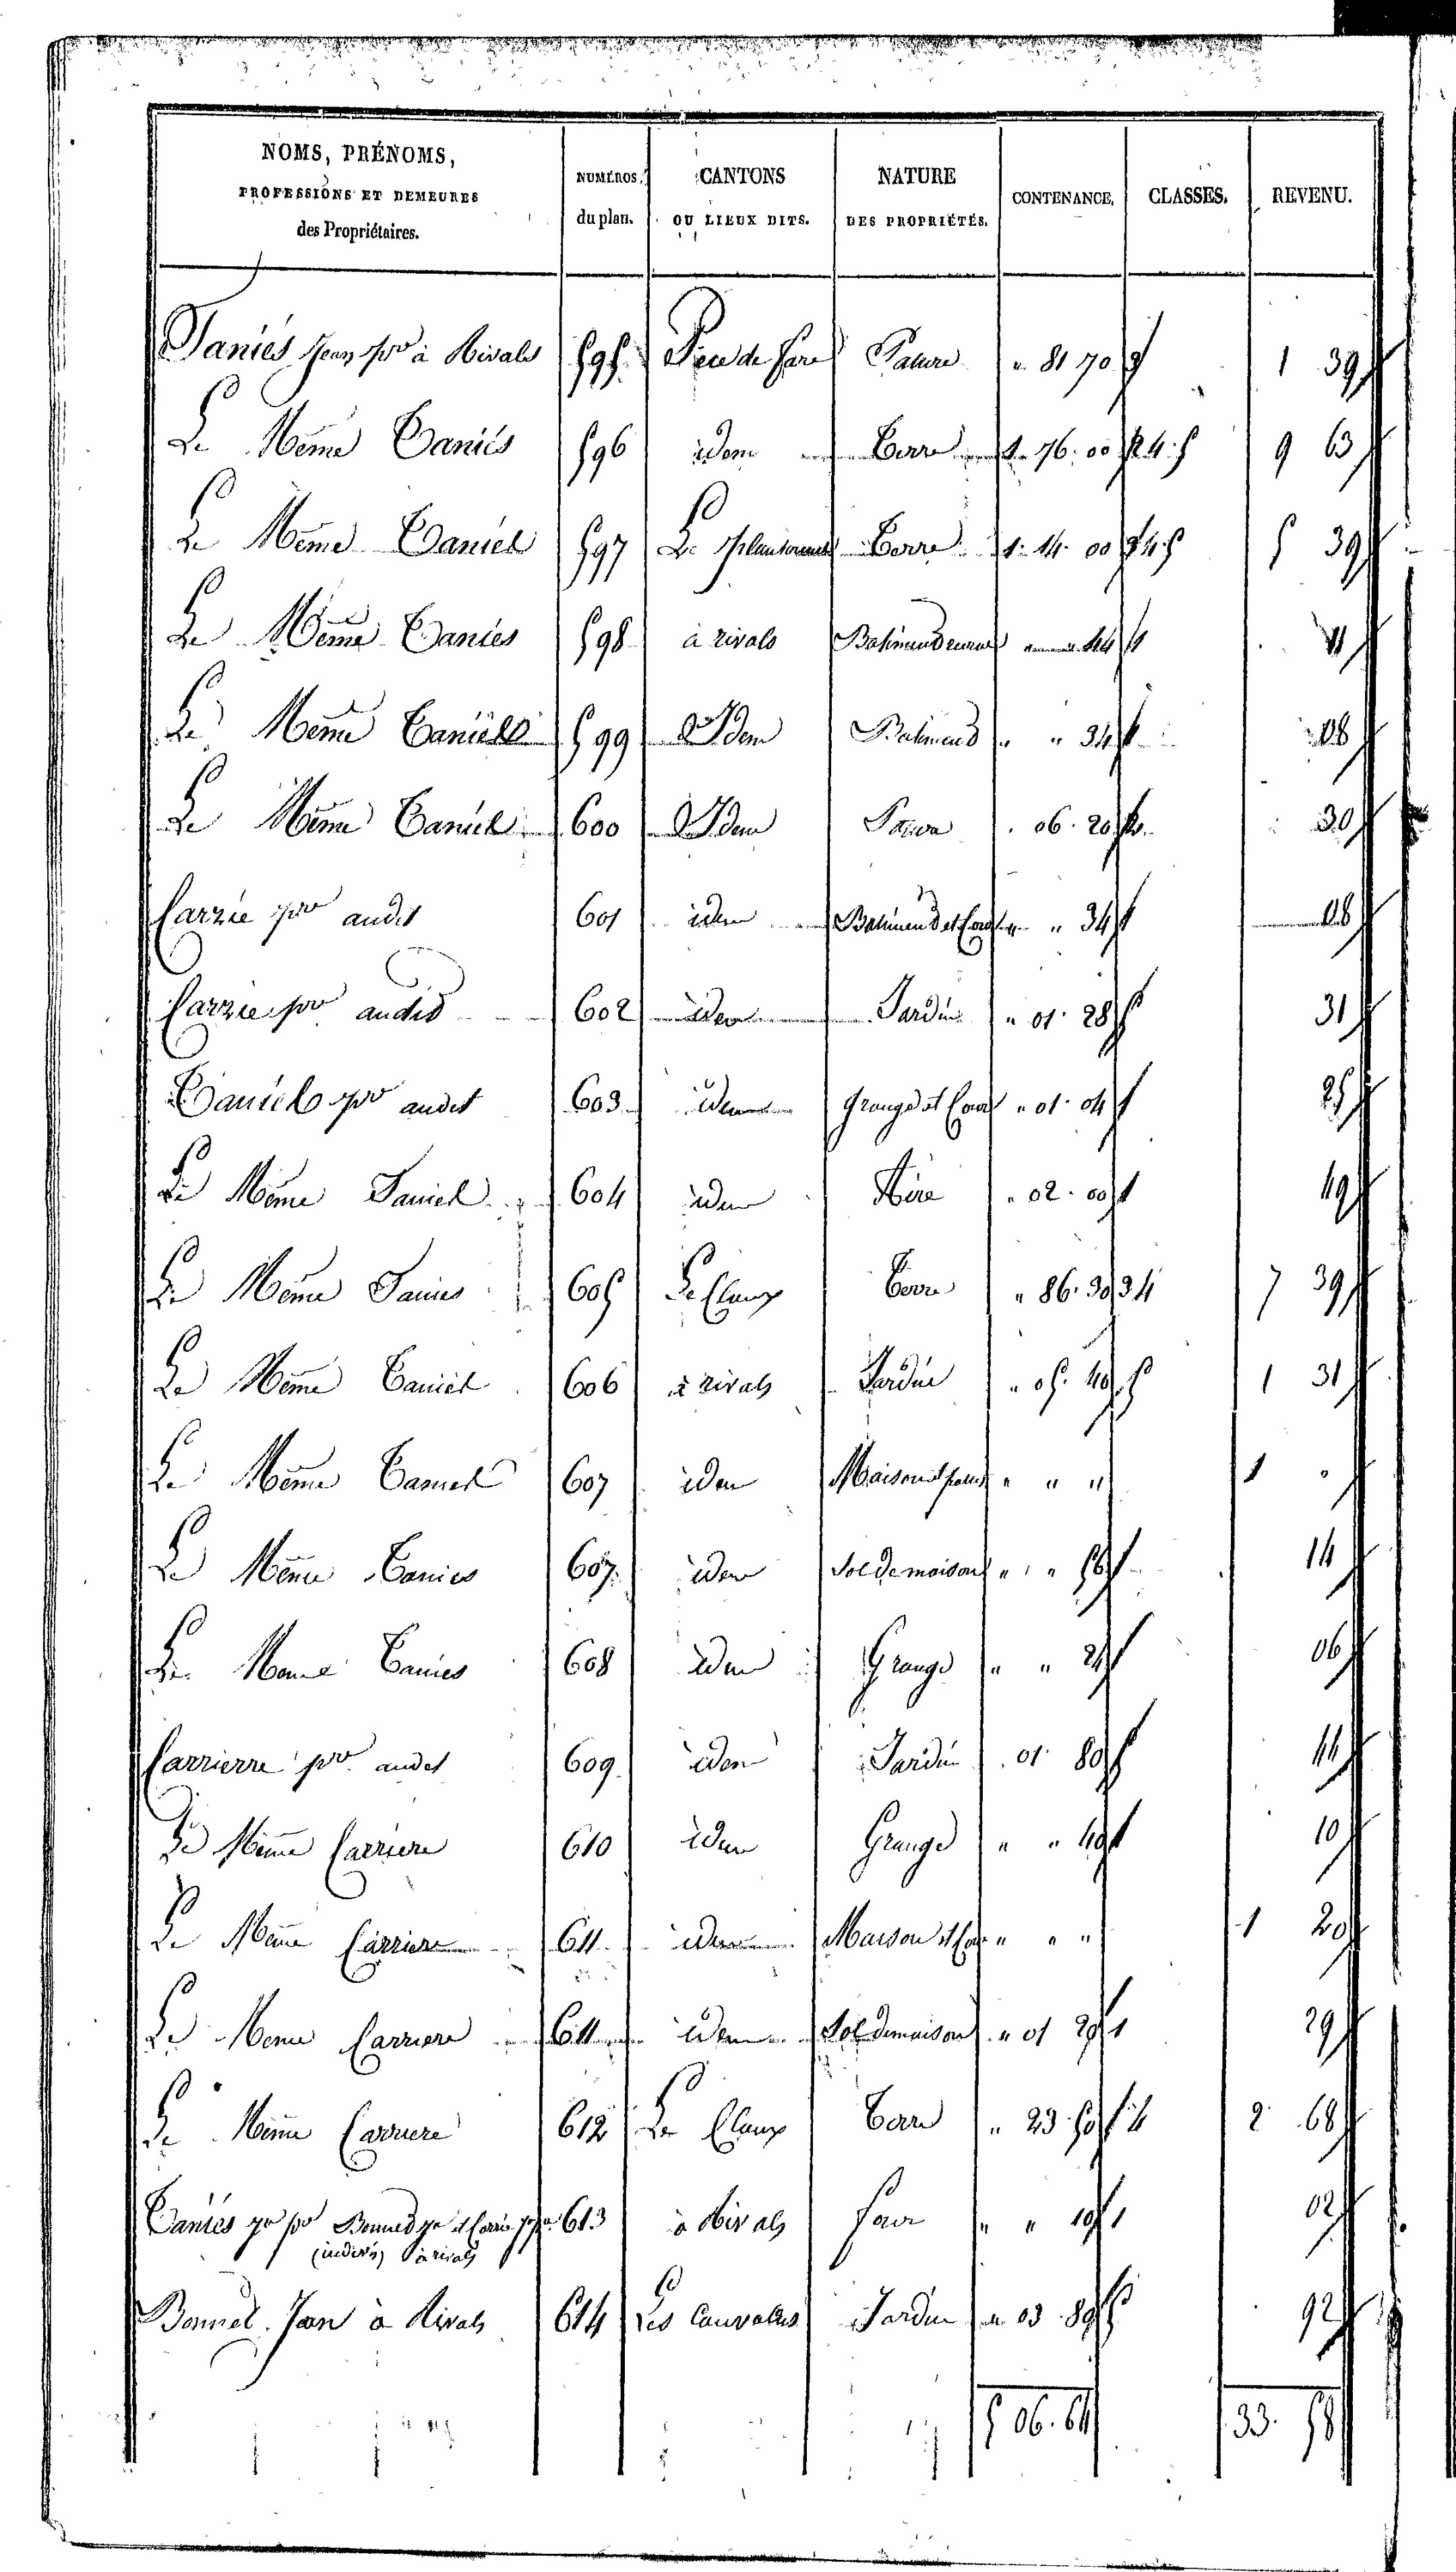 NOMS, PRÉNOMS,
PROFESSIONS ET DEMEURES
des Propriétaires.
NUMÉROS.
du plan.
CANTONS
OU LIEUX DITS.
NATURE
DES PROPRIÉTÉS.
CONTENANCE.
CLASSES.
REVENU.
Taniés Jean pre à Rivals 595 Pature " 81 70 1 39
Le Même Taniés 596 idem Terre 1. 76. 00 3. 4. 5 9 63
Le Même Taniés 597 Terre 1. 14. 00 4. 5 5 39
Le Même Taniés 598 à rivals " " 44 1 11
Le Même Taniés 599 Idem Batiment " " 34 1 08
Le Même Taniés 600 Idem . 06. 20 30
Carrie pre audit 601 idem Batiment et Cour " " 34 1 08
Carrie pre audit 602 idem Jardin " 01. 28 31
Taniés pre audit 603 idem Grange et Cour " 01. 04 1 25
Le Même Taniés 604 idem Aire " 02. 00 1 49
Le Même Taniés 605 Le Claux Terre " 86. 30 3 4 7 39
Le Même Taniés 606 à rivals Jardin " 05. 40 1 31
Le Même Taniés 607 idem Maison et " " " 1 "
Le Même Taniés 607. idem Sol de maison " " 56 1 14
Le Même Taniés 608 idem Grange " " 24 1 06
Carrierre pre audit 609 idem Jardin . 01. 80 44
Le Même Carriere 610 idem Grange " " 40 1 10
Le Même Carriere 611 idem Maison et Cour " " " 1 20
Le Même Carriere 611 idem Sol de maison " 01 20 1 29
Le Même Carriere 612 Le Claux Terre " 23. 50 4 2 68
Taniés Bonnet et 613 à Rivals Four " " 10 1 02
(indivis) à rivals
Bonnet Jean à Rivals 614 Les Jardin " 03. 80 92
5 06. 64 33. 58